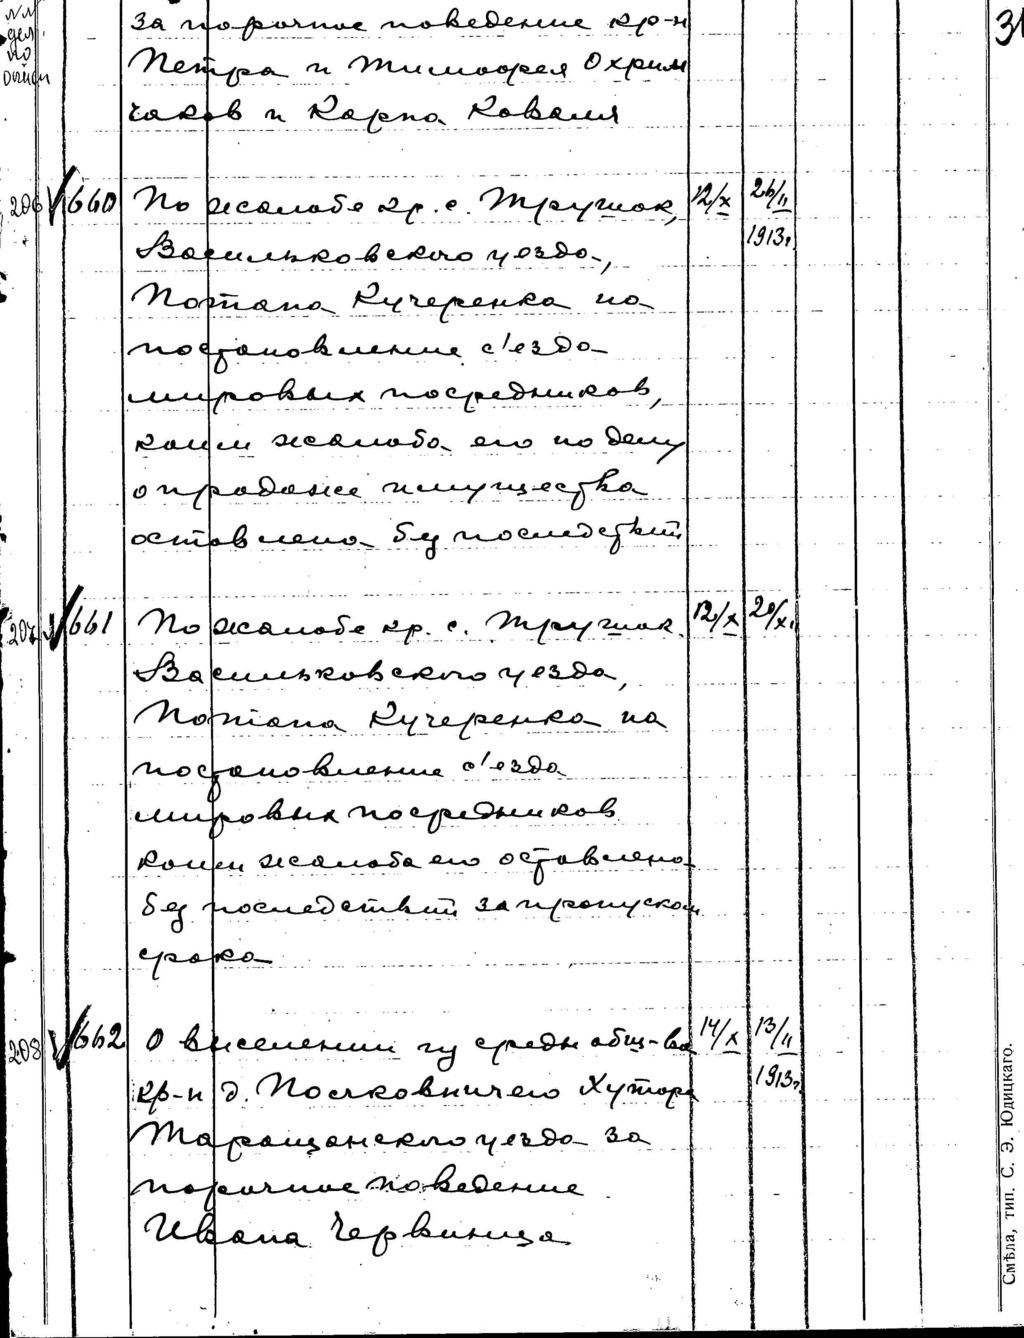 №№
дел.
по
описи
за порочное поведение кр-н
Петра и Тимофея Охрим
чаков и Карпа Коваля
206 660 По жалобе кр. с. Трушок, 12/X 26/II
1913г.
Васильковского уезда,
Потапа Кучеренка на
постановление с'езда
мировых посредников,
коим жалоба его по делу
о продаже имущества
оставлена без последствий
207 661 По жалобе кр. с. Трушок 12/X 20/XI
Васильковского уезда,
Потапа Кучеренка на
постановление с'езда
мировых посредников
коим жалоба его оставлена
без последствий за пропуском
срока
208 662 О выселении из среды общ-ва 14/X 13/II
кр-н д. Полковничего Хутора 1913г.
Таращанского уезда за
порочное поведение
Ивана Червинца
Смѣла, тип. С. Э. Юдицкаго.